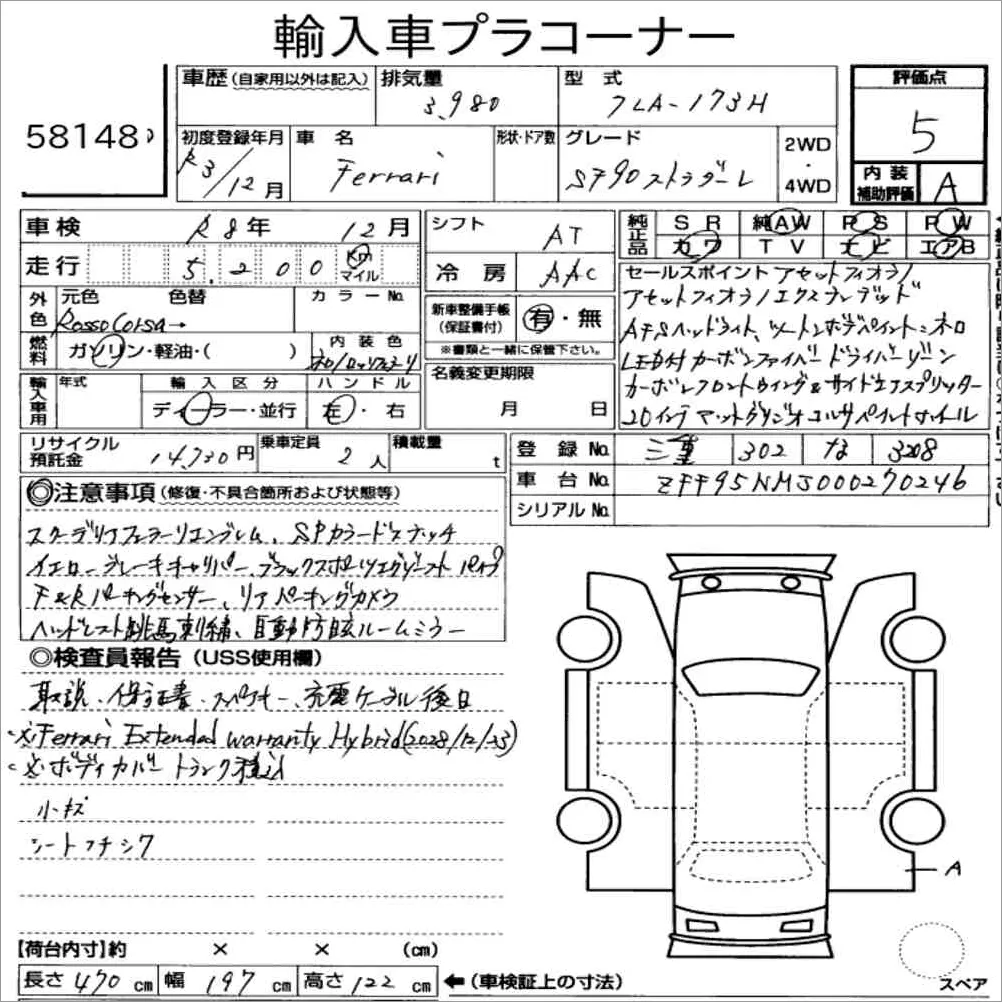 輸入車プラコーナー
58148
車歴(自家用以外は記入) 排気量 3,980 型式 7LA-173H 評価点 5
初度登録年月 R3/12月 車名 Ferrari 形状・ドア数 グレード SF90ストラダーレ 2WD・4WD 内装補助評価 A
車検 R8年 12月 シフト AT 純正品 SR 純AW PS PW
カワ TV ナビ エアB
走行 5,200 Km マイル 冷房 AAC
外色 元色 色替 カラーNo. Rosso Corsa→
新車整備手帳(保証書付) 有・無
※書類と一緒に保管下さい。
燃料 ガソリン・軽油・( ) 内装色
名義変更期限 月 日
輸入車用 年式 輸入区分 ディーラー・並行 ハンドル 左・右
セールスポイント アセットフィオラノ
アセットフィオラノエクステンデッド
AFSヘッドライト、ツートンボディペイント:ネロ
LED付カーボンファイバードライバーゾーン
カーボンフロントウイング&サイドエアスプリッター
20インチマットグリジオコルサペイントホイール
リサイクル預託金 14,730円 乗車定員 2人 積載量 t
登録No. 三重 302 な 3208
車台No. ZFF95NMJ000270246
シリアルNo.
◎注意事項(修復・不具合箇所および状態等)
スクーデリアフェラーリエンブレム、SPカラードステッチ
イエローブレーキキャリパー、ブラックスポーツエグゾーストパイプ
F&Rパーキングセンサー、リアパーキングカメラ
ヘッドレスト跳馬刺繍、自動防眩ルームミラー
◎検査員報告(USS使用欄)
取説、保証書、スペアキー、充電ケーブル後日
※Ferrari Extended warranty Hybrid(2028/12/23)
※ボディカバートランク積込
小キズ
シートフチシワ
A
【荷台内寸】約 × × (cm)
長さ 470 cm 幅 197 cm 高さ 122 cm ←(車検証上の寸法)
スペア